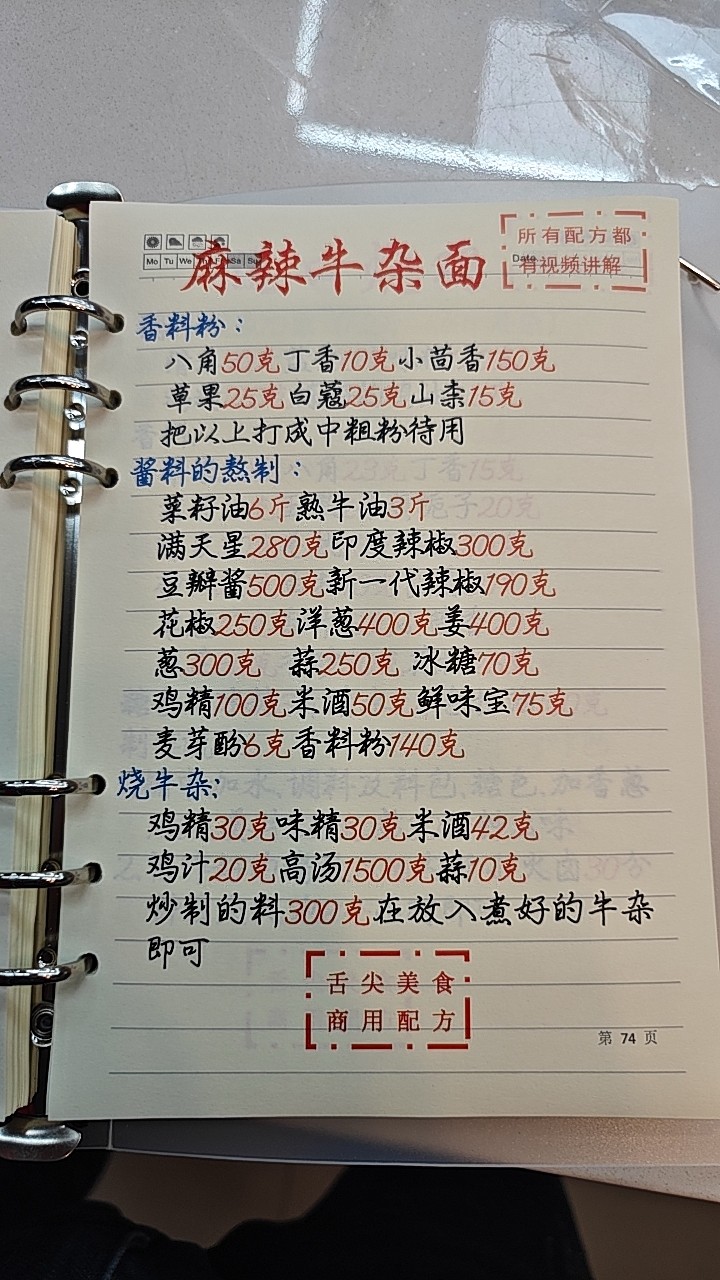 麻辣牛杂面
所有配方都
有视频讲解
Mo Tu We Th Fr Sa Su
Date
香料粉：
八角50克丁香10克小茴香150克
草果25克白蔻25克山柰15克
把以上打成中粗粉待用
酱料的熬制：
菜籽油6斤熟牛油3斤
满天星280克印度辣椒300克
豆瓣酱500克新一代辣椒190克
花椒250克洋葱400克姜400克
葱300克 蒜250克 冰糖70克
鸡精100克米酒50克鲜味宝75克
麦芽酚6克香料粉140克
烧牛杂：
鸡精30克味精30克米酒42克
鸡汁20克高汤1500克蒜10克
炒制的料300克在放入煮好的牛杂
即可
舌尖美食
商用配方
第 74 页